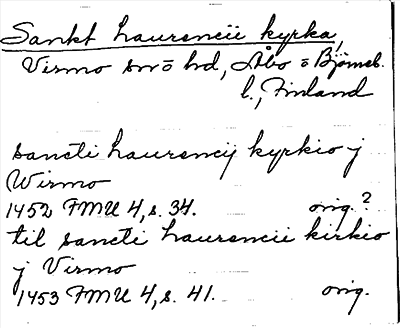 Sankt Laurencii kyrka,
Virmo sn o hd, Åbo o Björneb.
l., Finland
sancti Laurencij kyrkio j
Wirmo
1452 FMU 4, s. 34. orig.?
til sancti Laurencii kirkio
j Virmo
1453 FMU 4, s. 41. orig.